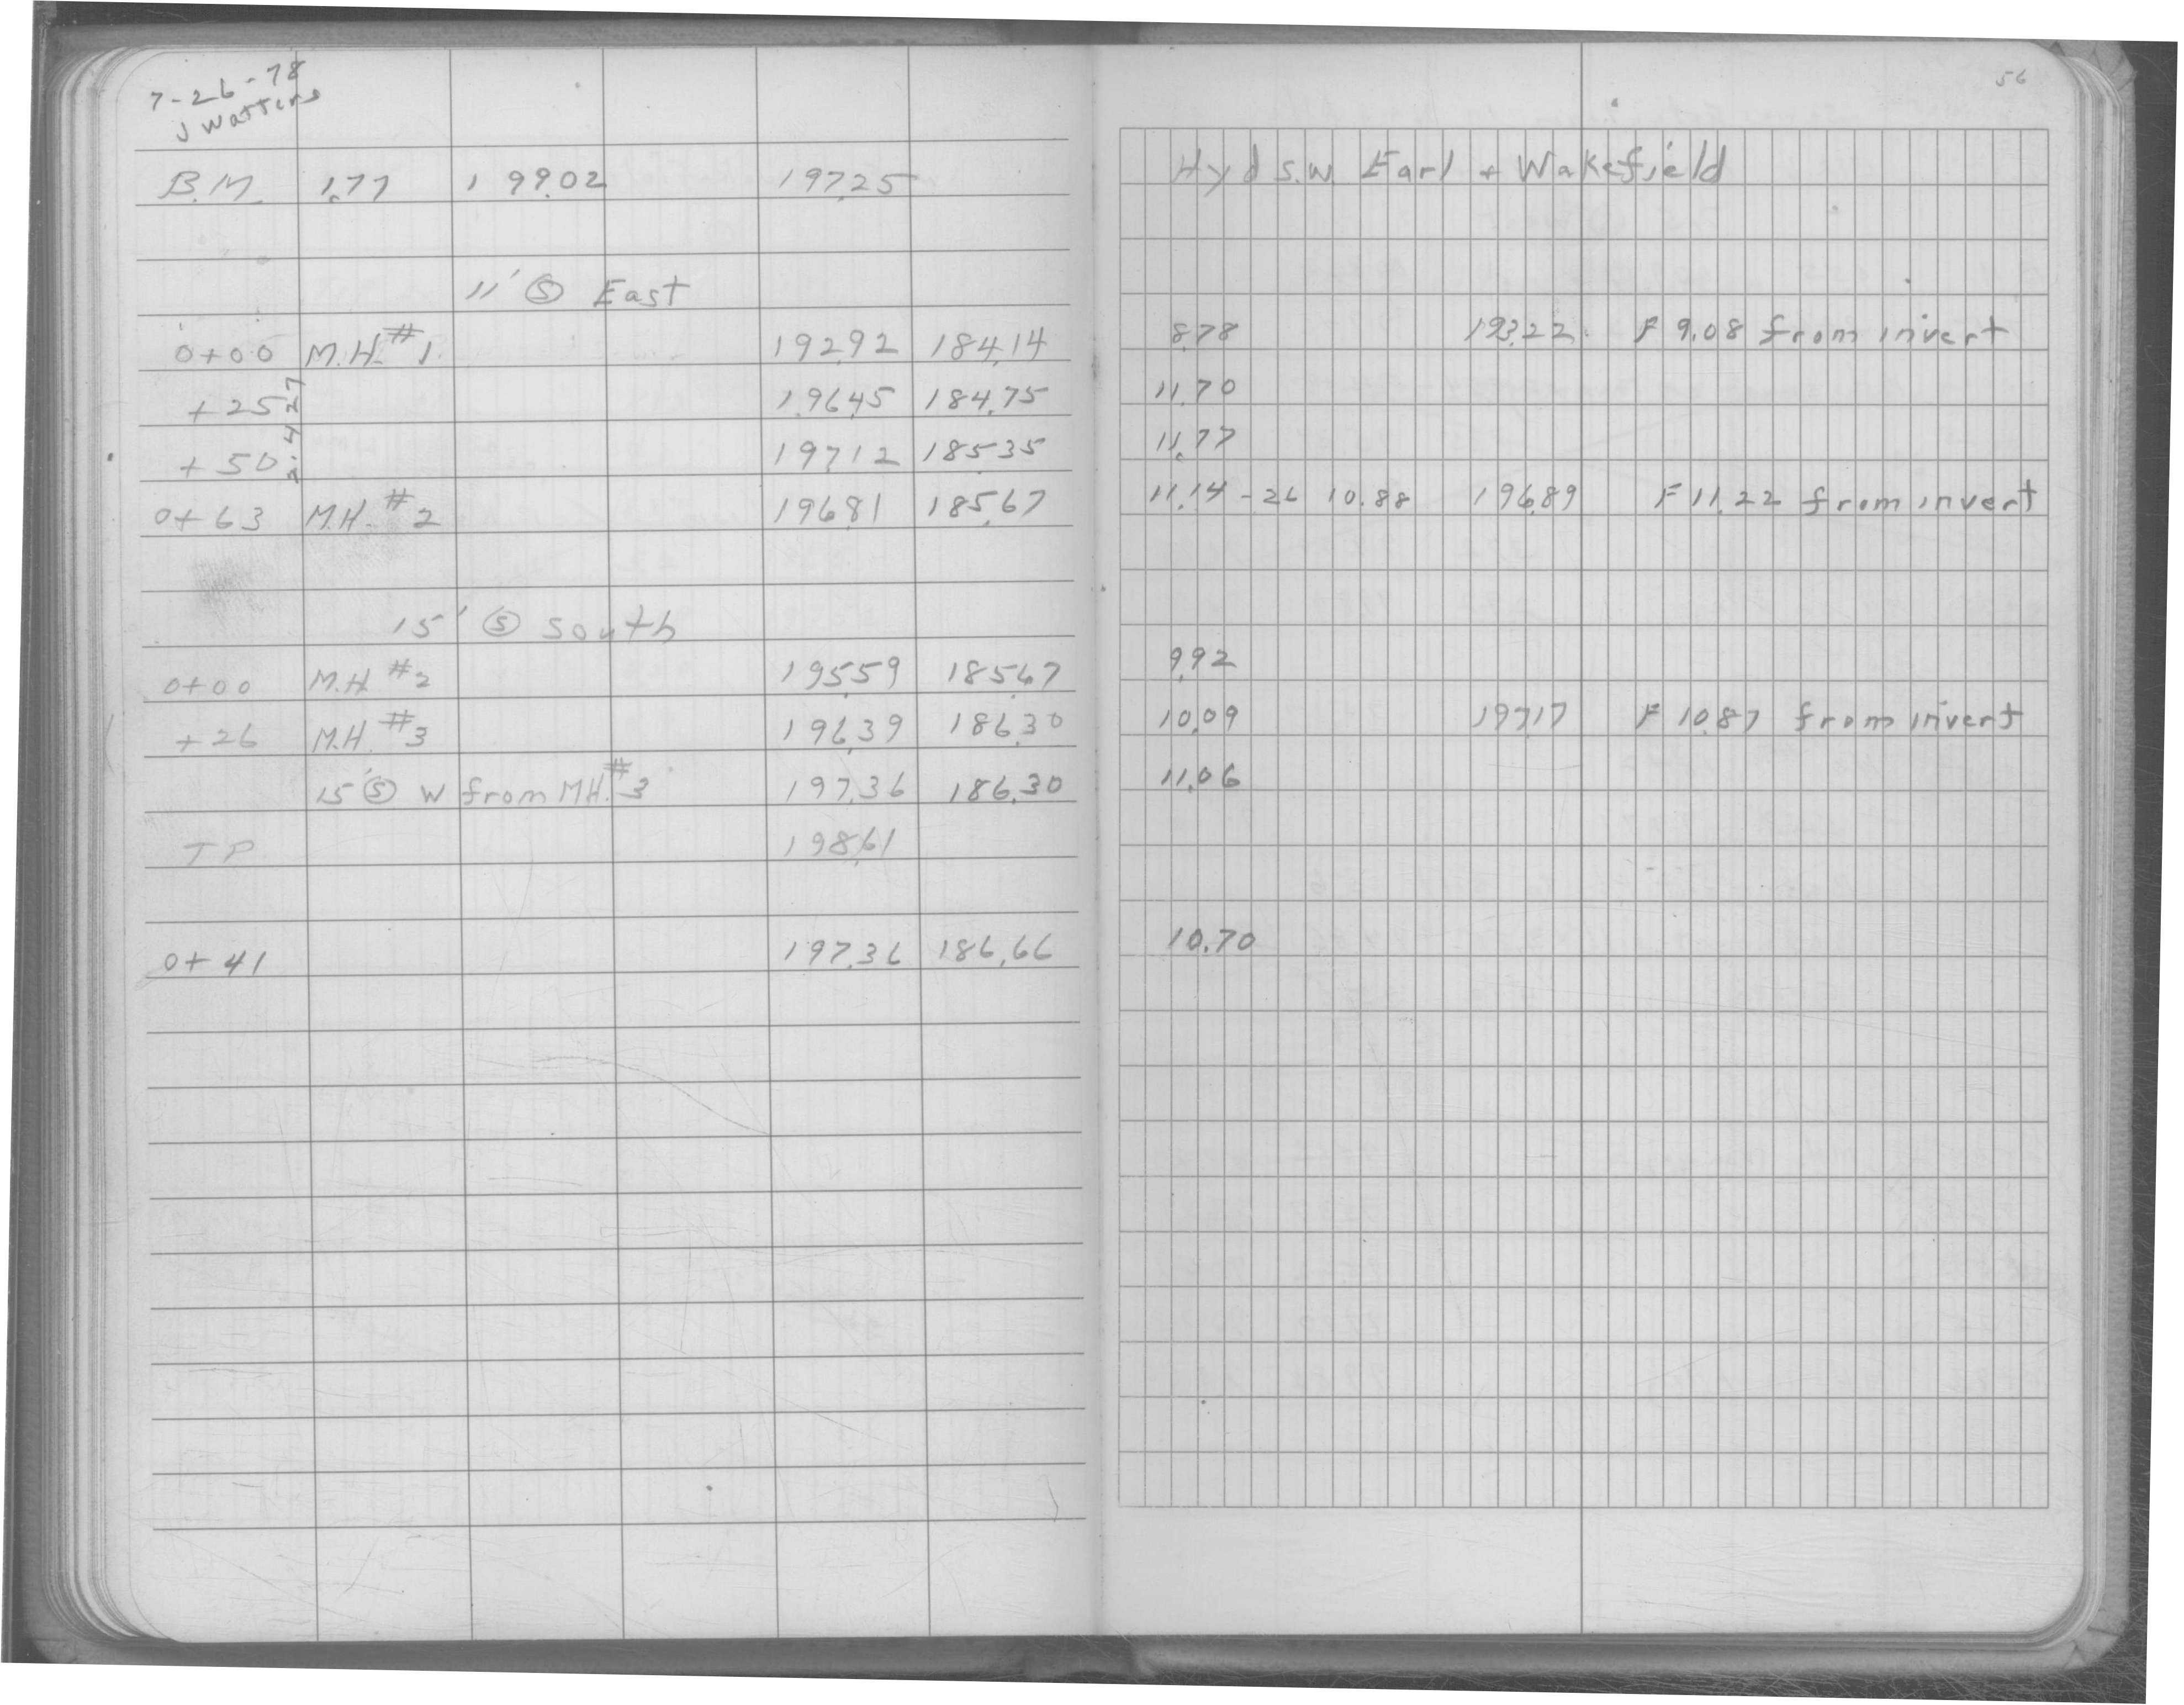 7-26-78
J Watters
56
B.M. 1.77 199.02 197.25 Hyd S.W. Earl + Wakefield
11' Ⓢ East
0+00 M.H. #1 192.92 184.14 8.78 193.22 F 9.08 from invert
+25 196.45 184.75 11.70
+50 197.12 185.35 11.77
2.427
0+63 M.H. #2 196.81 185.67 11.14 -26 10.88 196.89 F 11.22 from invert
15' Ⓢ South
0+00 M.H. #2 195.59 185.67 9.92
+26 M.H. #3 196.39 186.30 10.09 197.17 F 10.87 from invert
15' Ⓢ W from M.H. #3 197.36 186.30 11.06
TP 198.61
0+41 197.36 186.66 10.70